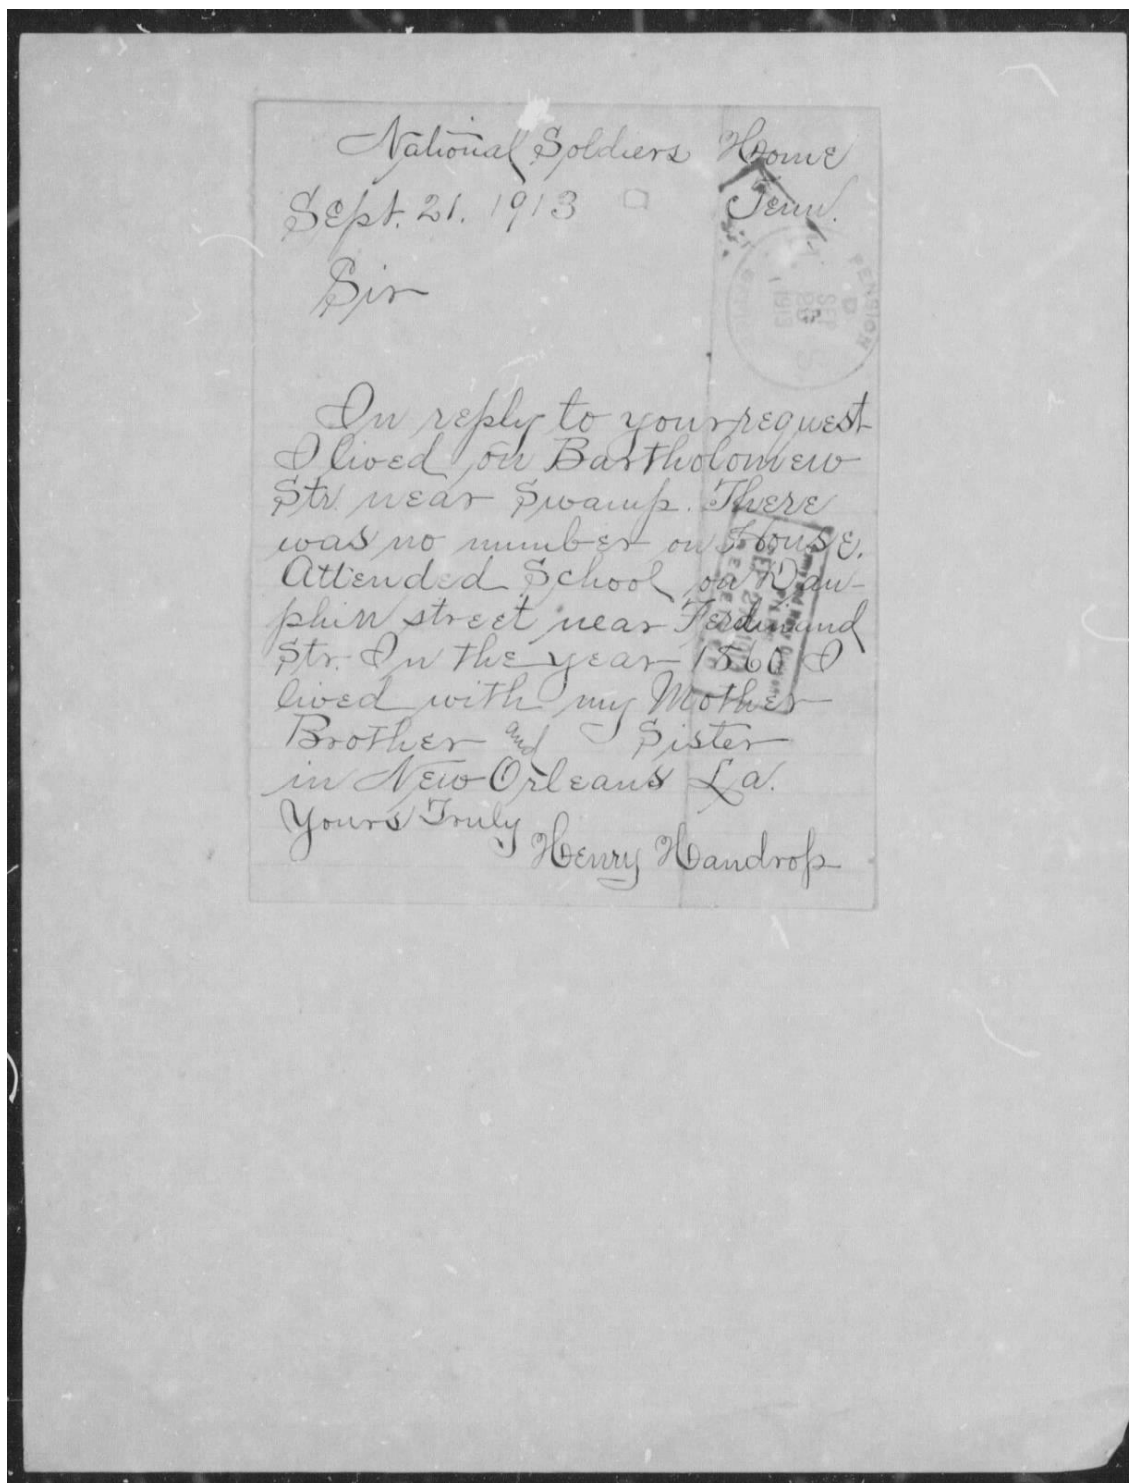 National Soldiers Home
Sept. 21. 1913 Tenn.
PENSION
SEP
1913
Sir
In reply to your request
I lived on Bartholomew
Str. near Swamp. There
was no number on House.
Attended School on Dau-
phin street near Ferdinand
Str. In the year 1860 I
lived with my Mother
Brother and Sister
in New Orleans La.
Yours Truly
Henry Handrop